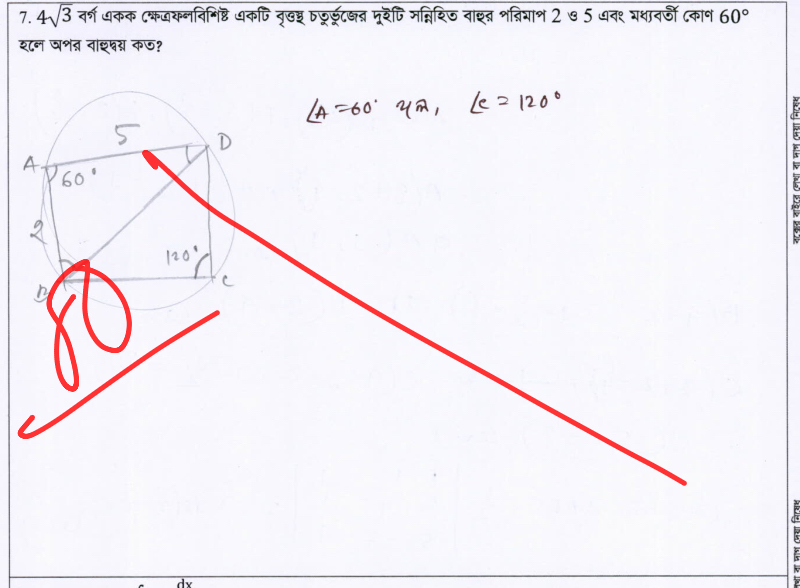 7. 4√3 বর্গ একক ক্ষেত্রফলবিশিষ্ট একটি বৃত্তস্থ চতুর্ভুজের দুইটি সন্নিহিত বাহুর পরিমাপ 2 ও 5 এবং মধ্যবর্তী কোণ 60°
হলে অপর বাহুদ্বয় কত?
∠A = 60° হলে, ∠C = 120°
5
A
D
60°
2
120°
B
C
dx